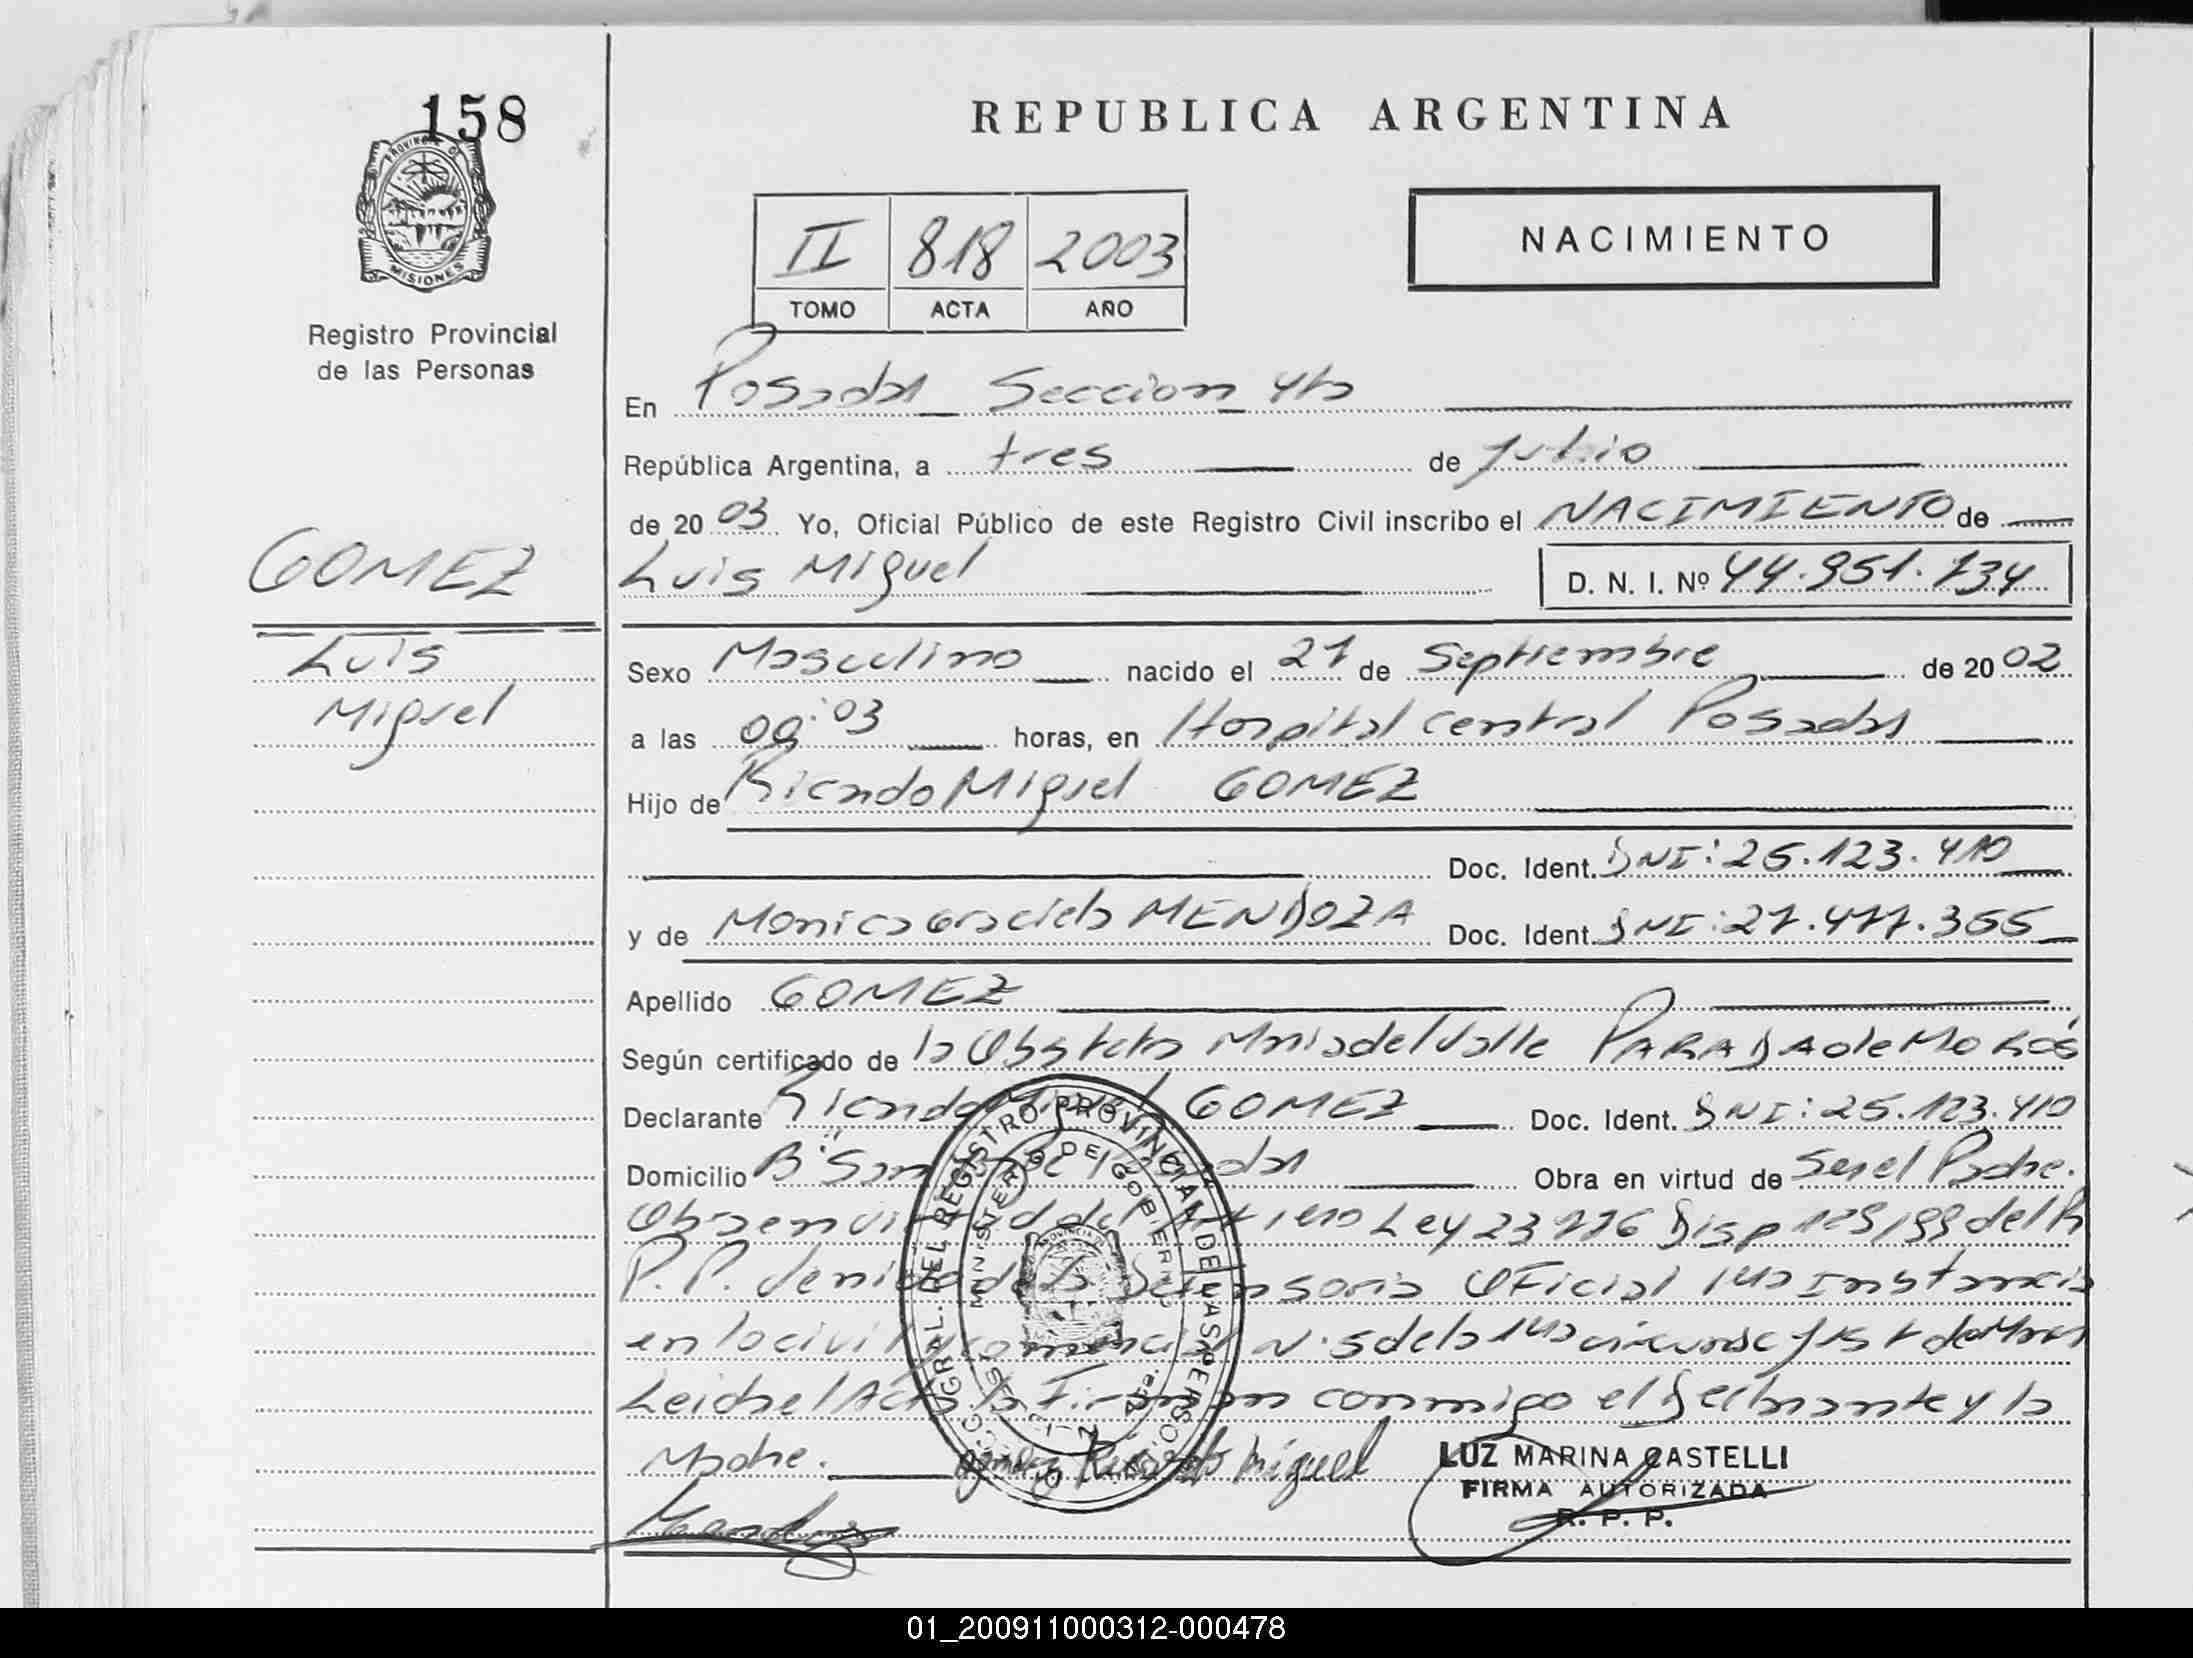 158
REPUBLICA ARGENTINA
PROVINCIA DE MISIONES
Registro Provincial
de las Personas
II 818 2003
TOMO ACTA AÑO
NACIMIENTO
En Posadas Seccion 4ta
República Argentina, a tres de Julio
de 20 03 Yo, Oficial Público de este Registro Civil inscribo el NACIMIENTO de
GOMEZ
Luis Miguel D. N. I. Nº 44.951.734
Luis
Miguel
Sexo Masculino nacido el 21 de Septiembre de 20 02
a las 09:03 horas, en Hospital Central Posadas
Hijo de Ricardo Miguel GOMEZ
Doc. Ident. DNI: 25.123.410
y de Monica Graciela MENDOZA Doc. Ident. DNI: 27.477.355
Apellido GOMEZ
Según certificado de la Obsteta Maria del Valle PARADA de
Declarante Ricardo Miguel GOMEZ Doc. Ident. DNI: 25.123.410
Domicilio Bº San Posadas Obra en virtud de Ser el Padre.
Obra en virtud del Art 1ero Ley 23776 Disp 129/99 del R
P.P. Venida de la Defensoria Oficial 1era Instancia
en lo civil y comercial N.5 de la 1era circunsc
Leida el Acta la Firman conmigo el Declarante y la
Madre. Gomez Ricardo Miguel
LUZ MARINA CASTELLI
FIRMA AUTORIZADA
R. P. P.
DEL REGISTRO PROVINCIAL DE LAS PERSO
MINISTERIO DE GOBIERNO
01_200911000312-000478